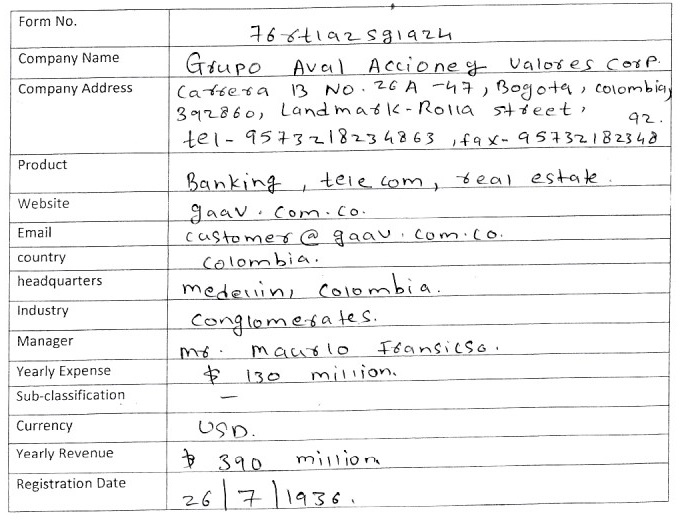 Form No. 76rt1a2sg1a24
Company Name Grupo Aval Acciones Valores Corp.
Company Address Carrera 13 No. 26A -47, Bogota, colombia,
392860, Landmark-Rolla street,
92.
tel- 9573218234863, fax- 95732182348
Product Banking, telecom, real estate.
Website gaav.com.co.
Email customer@gaav.com.co.
country Colombia.
headquarters medellin, Colombia.
Industry Conglomerates.
Manager mr. Maurlo Fransicso.
Yearly Expense $ 130 million.
Sub-classification –
Currency USD.
Yearly Revenue $ 390 million
Registration Date 26/7/1936.